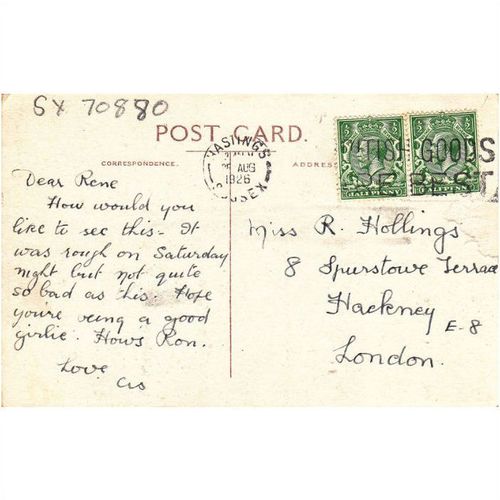 SX 70880
POST CARD.
CORRESPONDENCE.
HASTINGS
AUG
1926
SUSSEX
GOODS
Dear Rene
How would you
like to see this - It
was rough on Saturday
night but not quite
so bad as this. Hope
you're being a good
girlie. Hows Ron.
Love
Miss R. Hollings
8 Spurstowe Terrace
Hackney
E-8
London.